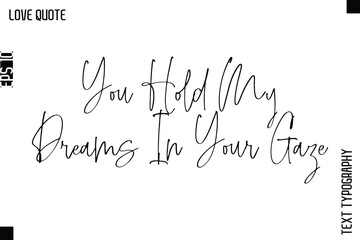 LOVE QUOTE
EPS 10
You Hold My
Dreams In Your Gaze
TEXT TYPOGRAPHY